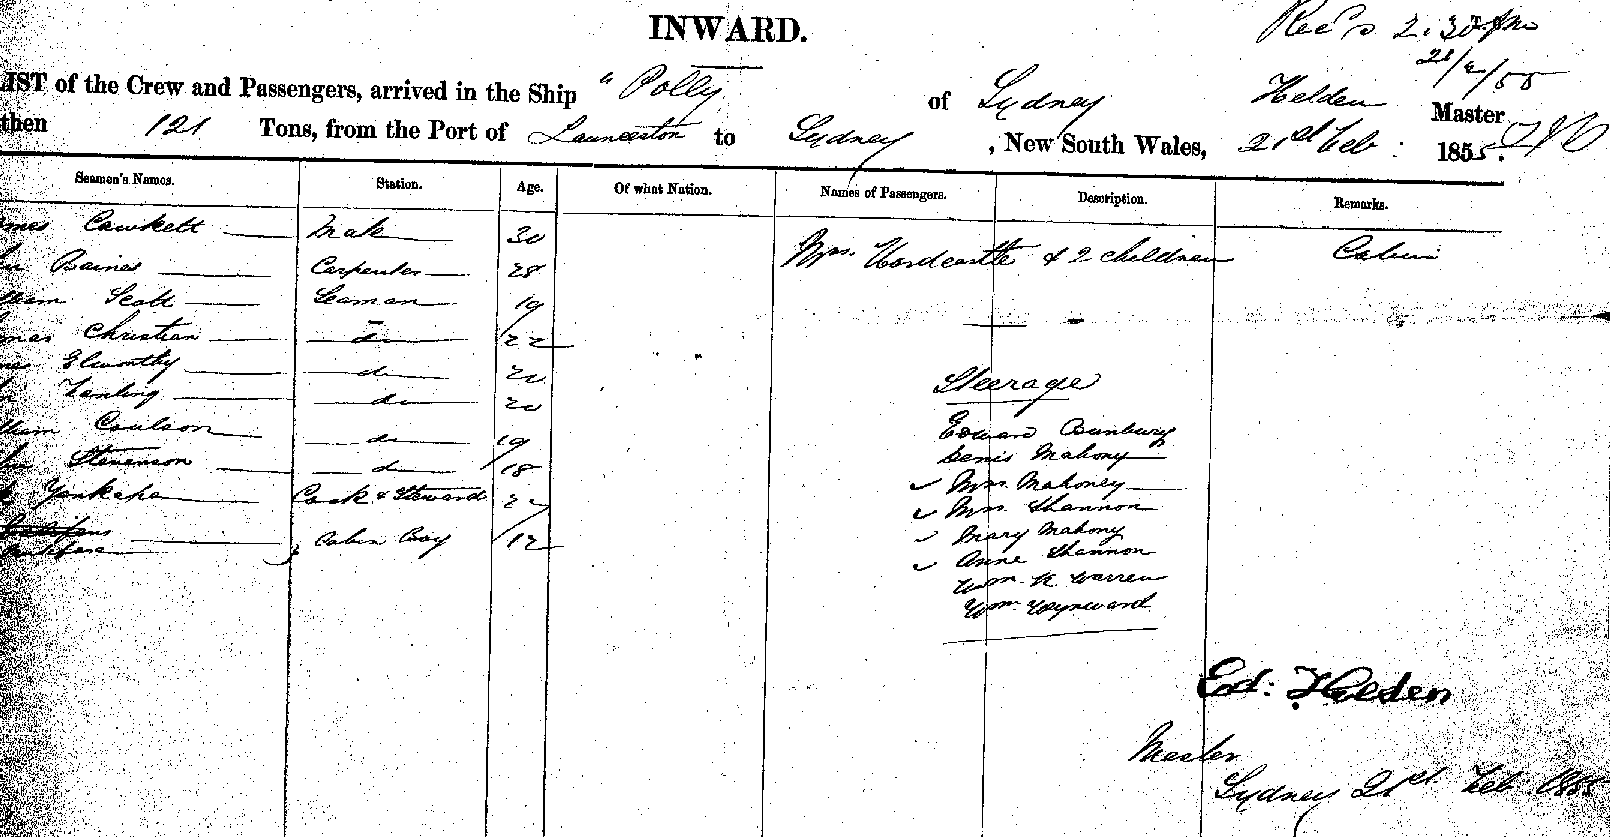 INWARD.
Rec'd 2.30 pm
21/2/55
LIST of the Crew and Passengers, arrived in the Ship "Polly of Sydney Helden Master
then 121 Tons, from the Port of Launceston to Sydney, New South Wales, 21st Feb: 1855.
Seamen's Names. Station. Age. Of what Nation. Names of Passengers. Description. Remarks.
mes Cawkett Mate 30 Mrs. Hardcastle & 2 children Cabin
Baines Carpenter 28
liam Scott Seaman 19
mas Christian do 22
Elworthy do 20
do 20
Steerage
liam Coulson do 19
Edward Bunbury
Stevenson do 18
Denis Mahony
Yankaha Cook & Steward 22
Mrs Mahoney
Mrs Shannon
Cabin Boy 12
Mary Mahony
Anne Shannon
Wm. H. Warren
Wm.
Ed: Helden
Master
Sydney 21st Feb 1855